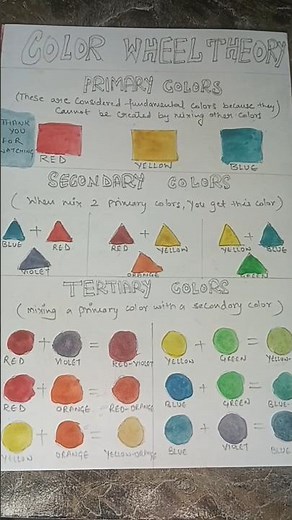 COLOR WHEEL THEORY
PRIMARY COLORS
(These are considered fundamental colors because they
cannot be created by mixing other colors
THANK
YOU
FOR
WATCHING
RED
YELLOW
BLUE
SECONDARY COLORS
(When mix 2 primary colors, you get this color)
+ + +
BLUE RED RED YELLOW YELLOW BLUE
VIOLET ORANGE GREEN
TERTIARY COLORS
(mixing a primary color with a secondary color)
+ = + =
RED VIOLET RED-VIOLET YELLOW GREEN YELLOW-
+ = + =
RED ORANGE RED-ORANGE BLUE GREEN BLUE-
+ = + =
YELLOW ORANGE YELLOW-ORANGE BLUE VIOLET BLUE